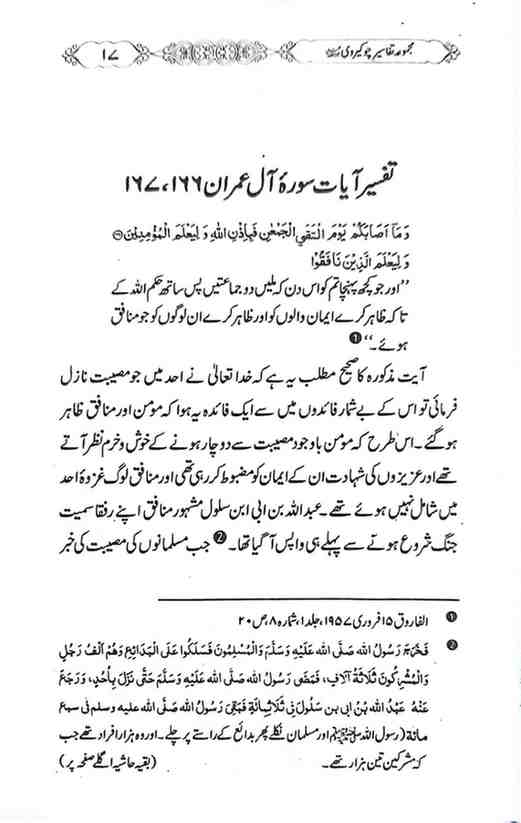 مجموعہ تفاسیر چوکیروی
۱۷
تفسیر آیات سورۂ آل عمران ۱۶۶، ۱۶۷
وَمَآ اَصَابَكُمْ يَوْمَ الْتَقَى الْجَمْعٰنِ فَبِاِذْنِ اللّٰهِ وَ لِيَعْلَمَ الْمُؤْمِنِيْنَ
وَ لِيَعْلَمَ الَّذِيْنَ نَافَقُوْا
”اور جو کچھ پہنچا تم کو اس دن کہ ملیں دو جماعتیں پس ساتھ حکم اللہ کے
تاکہ ظاہر کرے ایمان والوں کو اور ظاہر کرے ان لوگوں کو جو منافق
ہوئے۔“ ❶
آیت مذکورہ کا صحیح مطلب یہ ہے کہ خدا تعالیٰ نے احد میں جو مصیبت نازل
فرمائی تو اس کے بے شمار فائدوں میں سے ایک فائدہ یہ ہوا کہ مومن اور منافق ظاہر
ہوگئے۔ اس طرح کہ مومن باوجود مصیبت سے دوچار ہونے کے خوش و خرم نظر آتے
تھے اور عزیزوں کی شہادت ان کے ایمان کو مضبوط کر رہی تھی اور منافق لوگ غزوۂ احد
میں شامل نہیں ہوئے تھے۔ عبداللہ بن ابی ابن سلول مشہور منافق اپنے رفقا سمیت
جنگ شروع ہونے سے پہلے ہی واپس آگیا تھا۔ ❷ جب مسلمانوں کی مصیبت کی خبر
❶ الفاروق ۱۵ فروری ۱۹۵۷، جلد ۱، شمارہ ۸، ص ۲۰
❷ فَخَرَجَ رَسُولُ اللهِ صَلَّى اللهُ عَلَيْهِ وَسَلَّمَ وَالْمُسْلِمُونَ فَسَلَكُوا عَلَى الْبَدَائِعِ وَهُمْ أَلْفُ رَجُلٍ
وَالْمُشْرِكُونَ ثَلَاثَةُ آلَافٍ، فَمَضَى رَسُولُ اللهِ صَلَّى اللهُ عَلَيْهِ وَسَلَّمَ حَتَّى نَزَلَ بِأُحُدٍ، وَرَجَعَ
عَنْهُ عَبْدُ اللهِ بْنُ ابی بن سَلُولَ فِي ثَلَاثِمِائَةٍ فَبَقِيَ رَسُولُ اللهِ صَلَّى الله عليه وسلم فی سبع
مائة (رسول اللہ ﷺ اور مسلمان نکلے پھر بدائع کے راستے پر چلے۔ اور وہ ہزار افراد تھے جب
کہ مشرکین تین ہزار تھے۔ (بقیہ حاشیہ اگلے صفحہ پر)